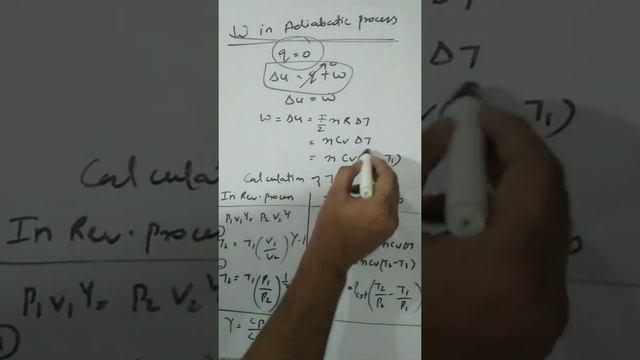 W in Adiabatic process
q = 0
ΔU = q + w
ΔU = W
W = ΔU = f/2 n R ΔT
= n Cv ΔT
= n Cv ( T1)
Calculation
In Rev. process
P1 V1^γ = P2 V2^γ
T2 = T1 (V1/V2)^γ-1
T2 = T1 (P1/P2)
γ =
nCvΔT
nCv(T2-T1)
= Pext (T2/P2 - T1/P1)